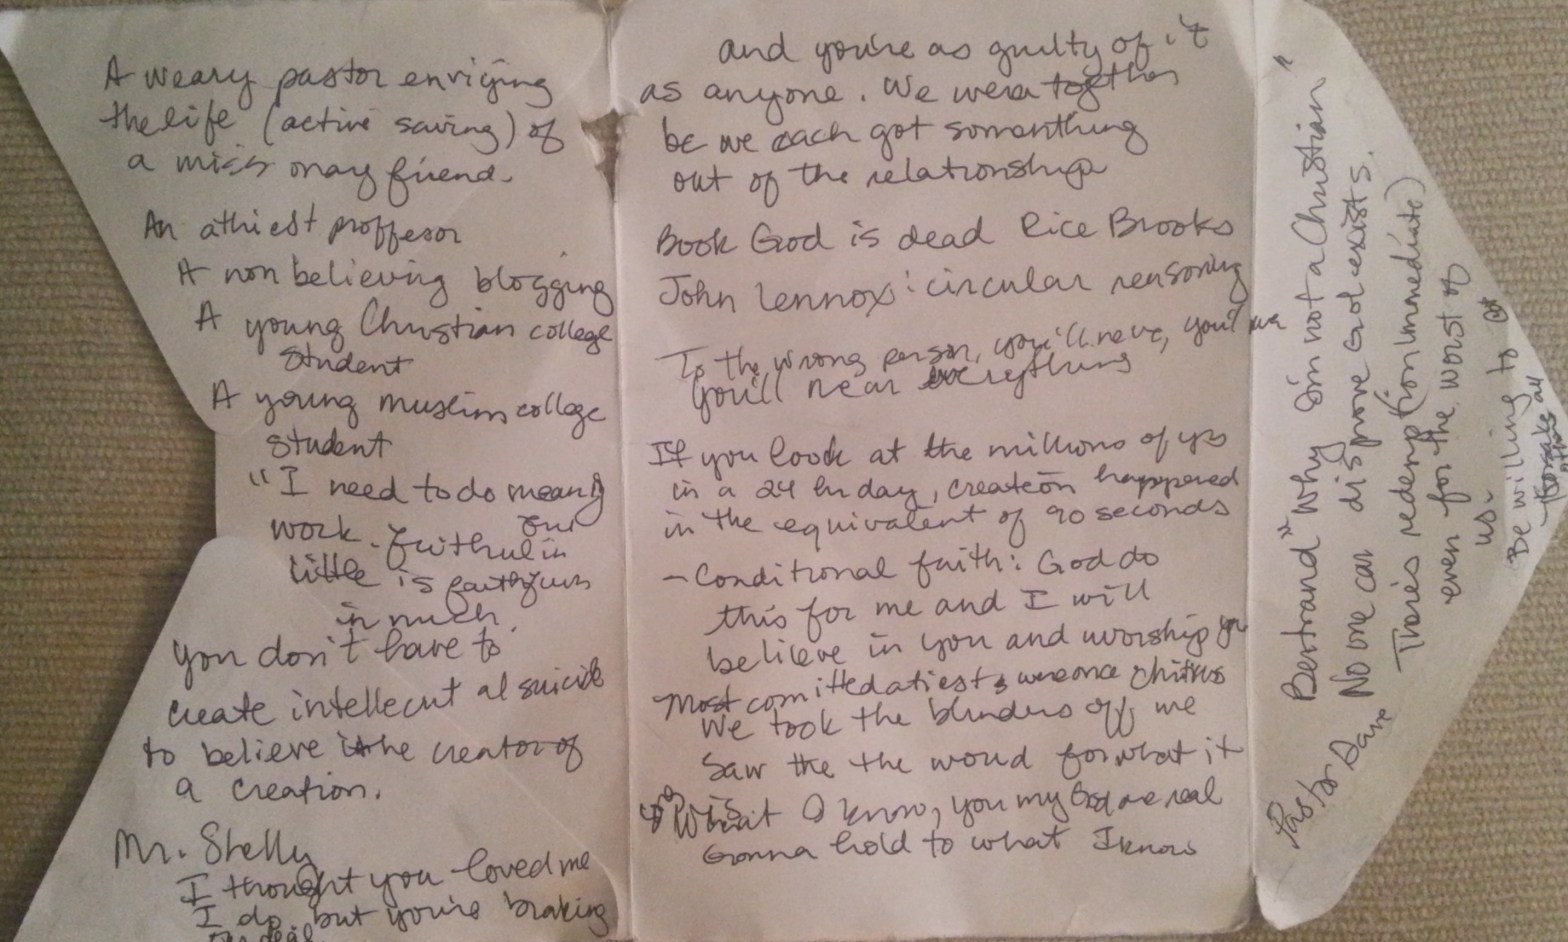 A weary pastor envying
the life (active saving) of
a missionary friend.
An athiest proffesor
A non believing blogging
A young Christian college
student
A young muslim college
student
"I need to do meany
work. Faithful in
our
little is faithful
in much
you don't have to
create intellecut al suicide
to believe the creator of
a creation.
Mr. Shelly
I thought you loved me
I do, but you're braking
our deal
and you're as guilty of it
as anyone. We were together
bc we each got somenthing
out of the relationship
Book God is dead Rice Brooks
John Lennox: circular reasoning
To the wrong person, you'll neve, you'll
You'll near everything
If you look at the millions of yrs
in a 24 hr day, creation happpered
in the equivalent of 90 seconds
- Conditional faith: God do
this for me and I will
believe in you and worship you
Most comitted atiests were once
We took the blinders off we
saw the the word for what it
is
What I know, you my God are real
Gonna hold to what I know
Bertrand "Why I'm not a Christian"
No one can disprove God exists.
There's redemption (on immediate)
even for the worst of
us.
Be willing to
Pastor Dave